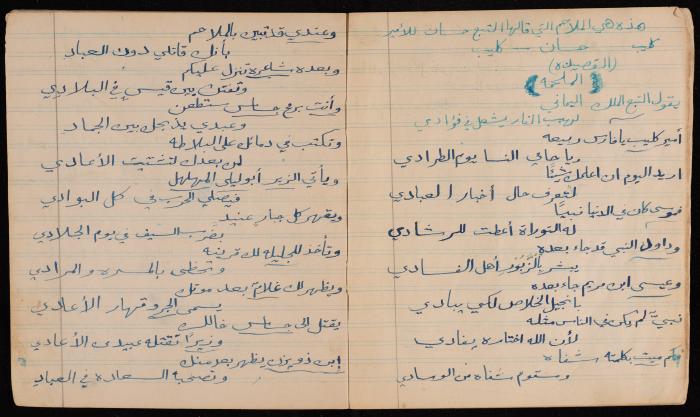 هذه هي الملاحم التي قالها التبع حسان للأمير
كليب حسان — كليب
(القصيدة)
(الملحمة)
يقول التبع الملك اليماني
لهيب النار يشعل في فؤادي
أمير كليب يا فارس ربيعه
ويا حامي النسا يوم الطرادي
اريد اليوم ان اعلمك شيئًا
لتعرف حال أخبار العبادي
فموسى كان في الدنيا نبيًا
له التوراة أعطت للرشادي
وداود النبي قد جاء بعده
يبشر بالزبور أهل الفسادي
وعيسى ابن مريم جاء بعده
بانجيل الخلاص لكي ينادي
نبيٌ لم يكن في الناس مثله
لأن الله اختاره ينادي
فكم ميت بكلمته شفاه
ومستوم شفاه من الوسادي
وعندي قد تبين بالملاحم
بانك قاتلي دون العباد
وبعده شاعره تنزل عليكم
وتفتن بين قيس في البلادي
وأنت برمح جساس ستطعن
وعبدي يذبحك بين الجماد
وتكتب في دمائك على البلاطه
لمن بعدك لتشتيت الأعادي
ويأتي الزير أبو ليلى المهلهل
فيصلي الحرب في كل البوادي
ويقهر كل جبار عنيد
بضرب السيف في يوم الجلادي
وتأخذ للجليله لك قرينه
وتحظى بالمسره والمرادي
ويظهر لك غلام بعد موتك
يسمى الجرو قهار الأعادي
يقتل الى جساس خالك
وزيرًا تقتله عبيدك الأعادي
إبن ذو يزن يظهر بعد منك
وتصحبه السعادة في العباد